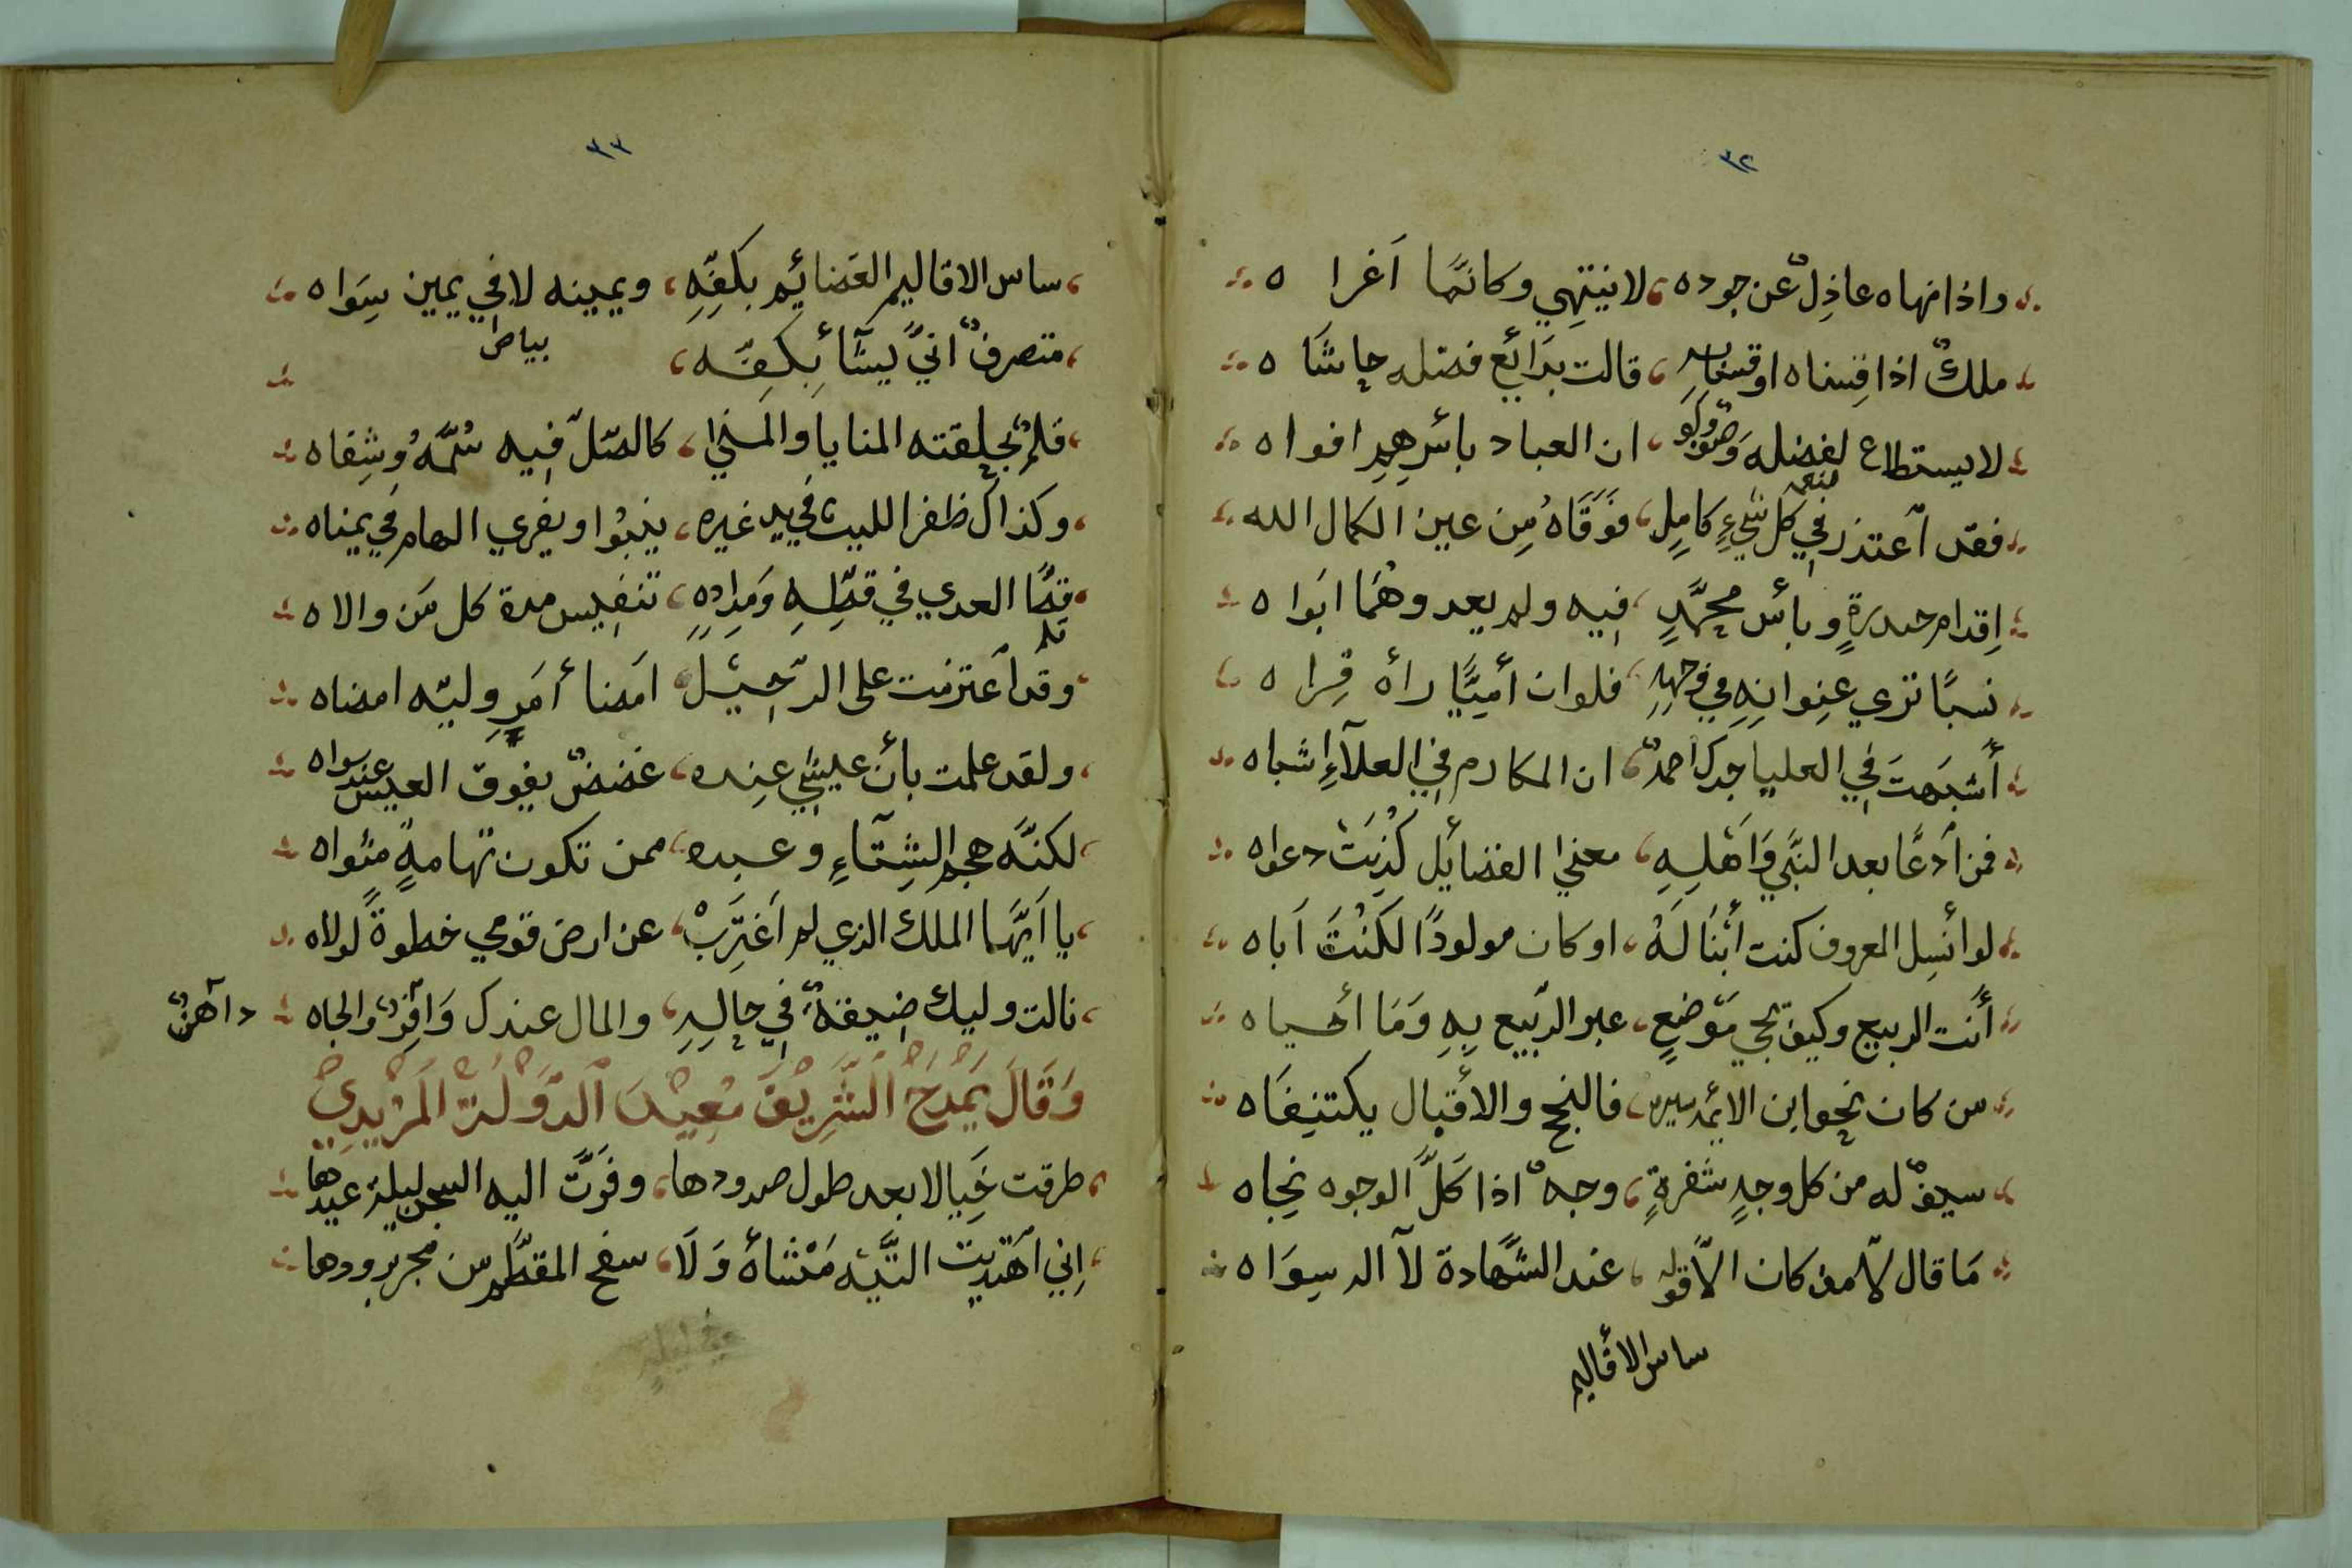 ٣٢
واذا نهاه عاذلٌ عن جوده، لا ينتهي وكانمّا اَغرا ه
ملكٌ اذا قِسناه او قسنا به، قالت بدَائع فضله حاشَا ه
لا يستطاع لفضله وَصفٌ وَلَو، ان العباد بأسرهِمِ افواه
فقد اَعتذر في كل شيءٍ كامِلٍ، فوَقَاهُ مِن عين الكمال الله
اِقدام حيدرةٍ وبأس محمّدٍ، فيه ولم يعد وهُمَا ابَوا ه
نسبًا تري عنِوانِهِ في وجهِهِ، فلوان أميًّا رأه قِرا ه
أَشبَهتَ في العليا جدكَ احمدٌ، ان المكارم في العلآءِ اشباه
فمن اَدعًّا بعد النبَّي وَاَهلِهِ، معني الفضائل كُذِبَتْ دعواه
لو انسِل المعروف كنت أبنَا لَهُ، او كان مولودًا لكنْتَ اَباه
أَنت الربيع وكيف يحي مَوضعٍ، عبر الرّبيع بِهِ وَمَا أحياه
من كان نحو ابن الائمه سيره، فالنجح والأقبال يكتنِفَاه
سيفٌ له من كل وجهٍ شفرةٍ، وجهٌ اذا كَلَّ الوجوه نجاه
مَا قال لا مذ كان الاّ قوله، عند الشّهادة لآ اله سِوَا ه
ساس الأقاليم
٣٣
ساس الاقاليم العَضائِم بكفّهِ، ويمينه لا في يمين سِوَاه
متصرفٌ انيَّ يشَأ بِكفِّه، بياض
قلمٌ بحلِقته المنايا والمني، كالصّل فيه سُمّهُ وشِفاه
وكذاك ظفر الليث في يد غيره، ينبوُا ويفري الهام في يمناه
قلمًا العدي في قطّهِ ومَدادهِ، تنفيس مدة كل مَن والاه
وقد اَعتزمت على الرّحيل، امَضا أمَرٍ وليّه امضاه
ولقد علمت بأن عليشي عنده، غضضٌ يفوق العيش عند سواه
لكنّه هجم الشِتآءِ وعبده، ممن تكون تهامةٍ مثواه
يا اَيهَّا الملك الذي لم اَغترَبْ، عن ارض قومي خطوةً لولاه
نالت وليك ضيقةٌ في حالِهِ، والمال عندك وَافرٌ والجاه
داهنٌ
وَقَالَ يَمْدَحُ الشَّرِيْفَ مُعِيْدَ اَلدَّوْلَةْ الَمزْيدِيْ
طرقت خَيِالا بعد طول صدودها، وفرَتَّ اليه السجن ليلة عيدها
اِني اَهَتديت التيّه مَنْشأهُ وَلاَ، سفح المقطّم من مجر برودها